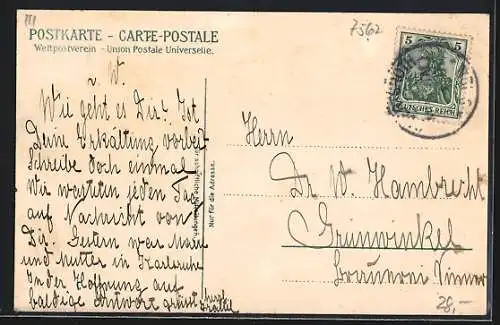 7562
POSTKARTE - CARTE-POSTALE
Weltpostverein - Union Postale Universelle.
5 5
DEUTSCHES REICH
L. W.
Wie geht es Dir? Ist
Deine Erkältung vorbei
Schreibe doch einmal
Wir warten jeden Tag
auf Nachricht von
Dir. Gestern war Mann
und Mutter in Karlsruhe
In der Hoffnung auf
baldige Antwort grüßt
Nur für die Adresse.
Herrn
Dr W Hambrecht
Grünwinkel
Brauerei Sinner
28,-